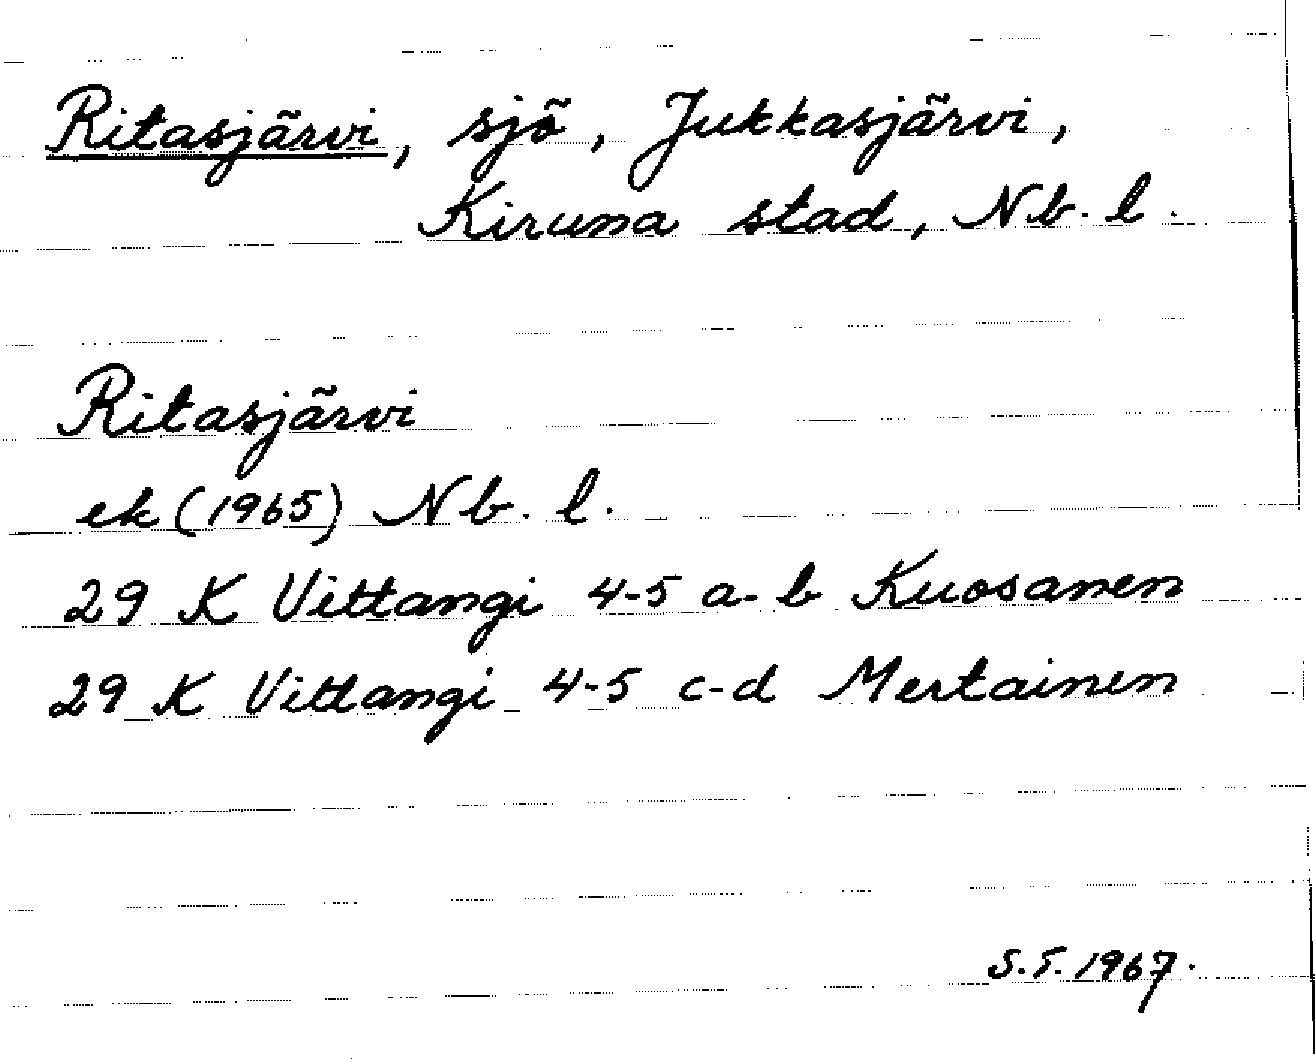 Ritasjärvi, sjö, Jukkasjärvi,
Kiruna stad, Nb. l.
Ritasjärvi
ek (1965) Nb. l.
29 K Vittangi 4-5 a-b Kuosanen
29 K Vittangi 4-5 c-d Mertainen
S.T. 1967.